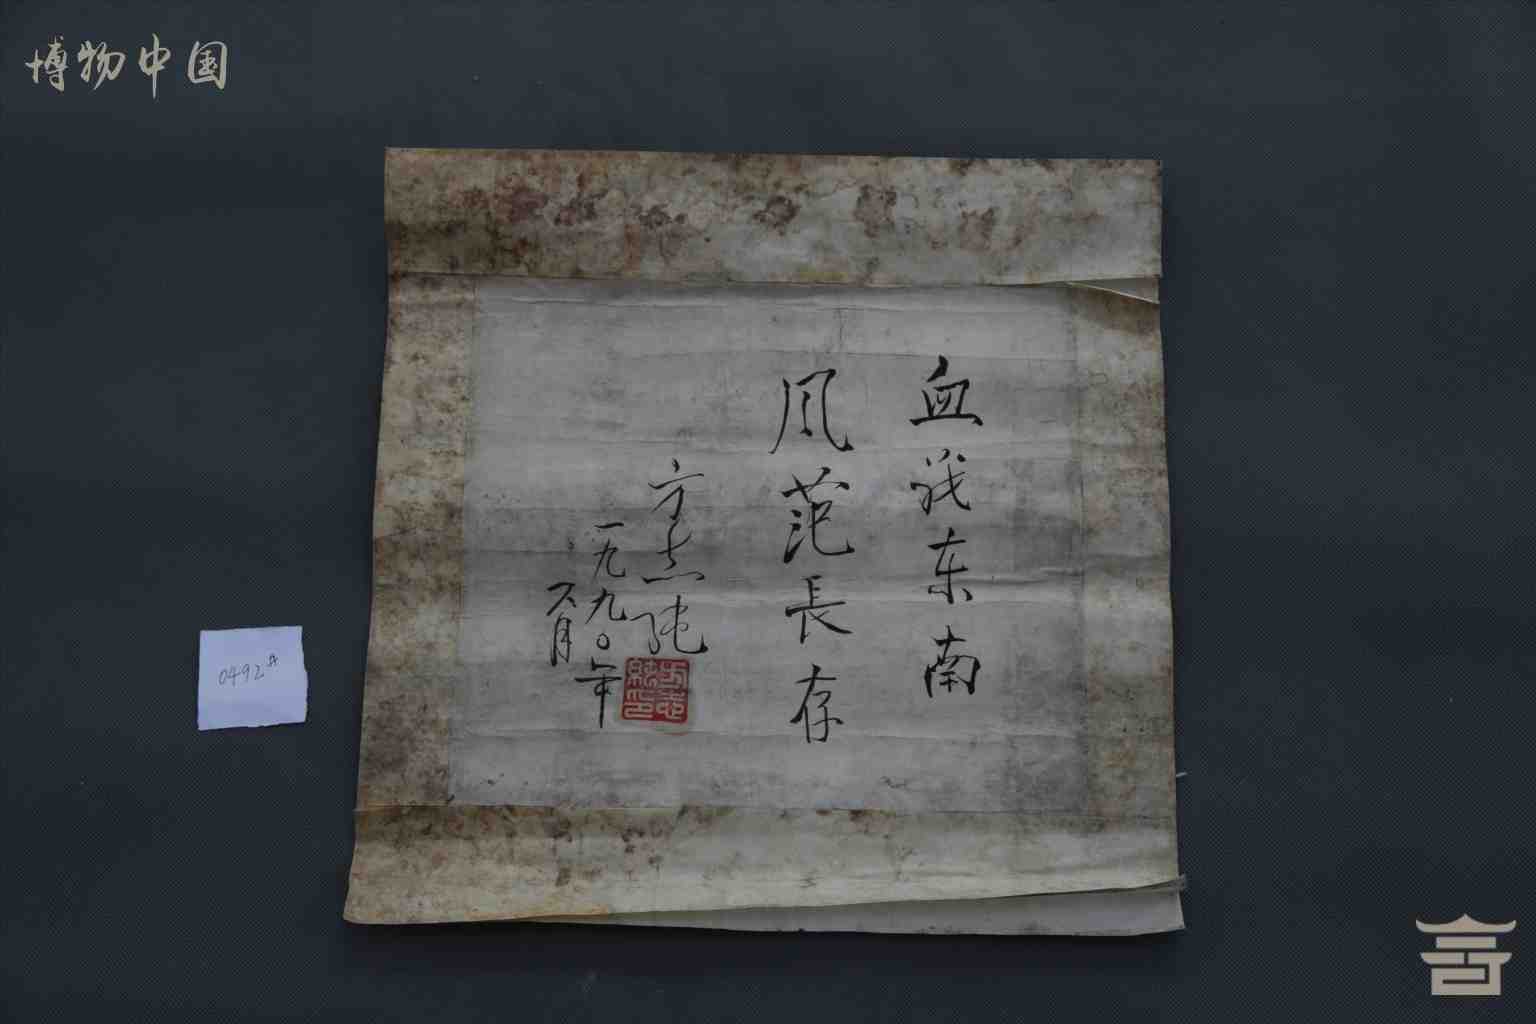 博物中国
血战东南
风范長存
方志纯
一九九〇年
六月
方志
純印
0492#